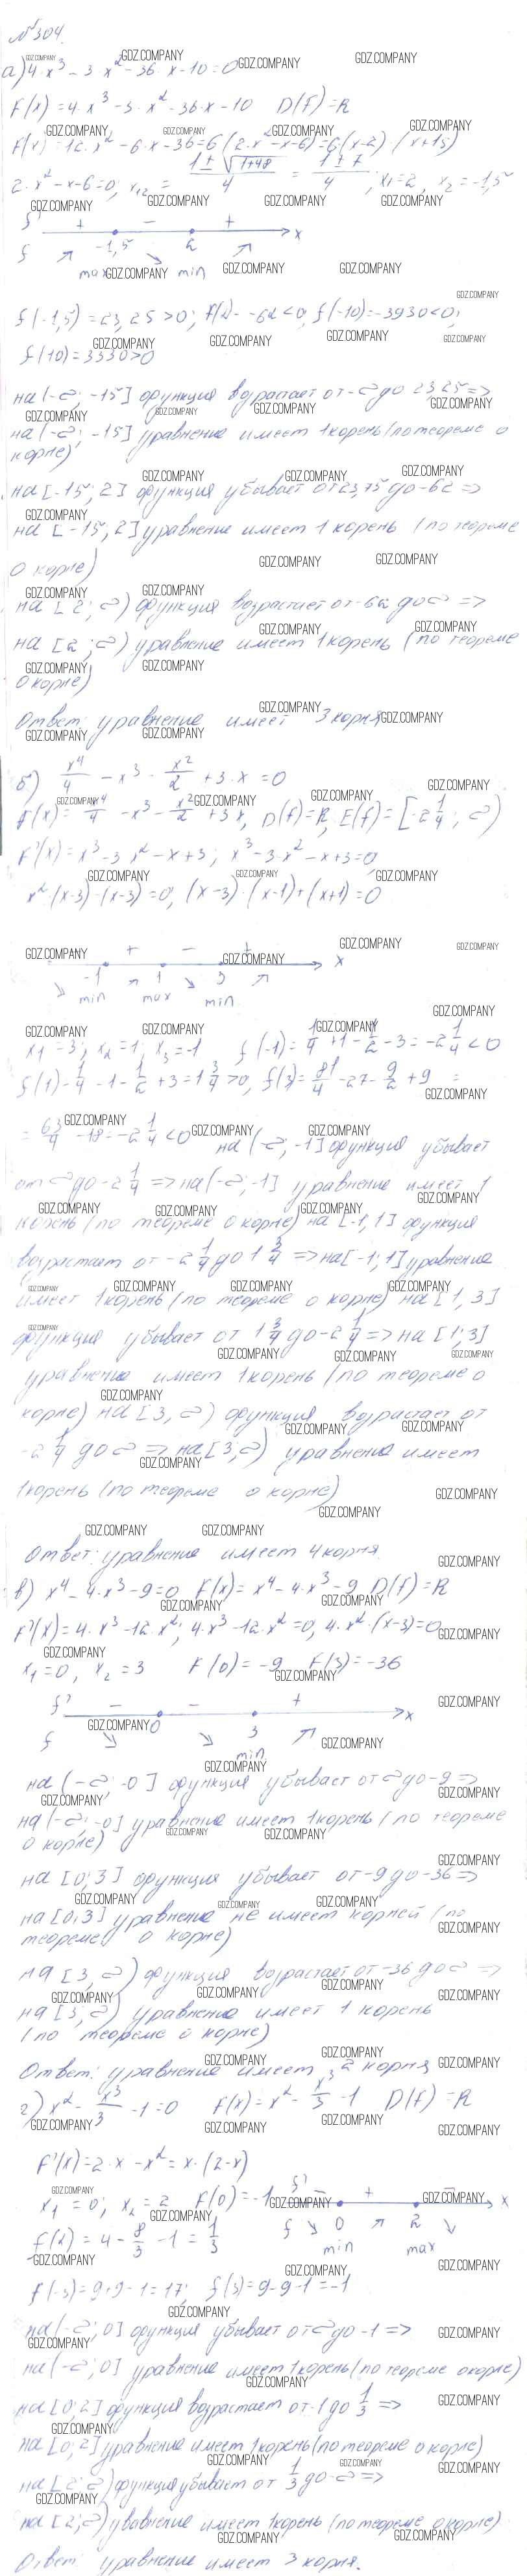 №304.
а) 4·x³ - 3·x² - 36·x - 10 = 0
F(x) = 4·x³ - 3·x² - 36·x - 10   D(f) = R
F'(x) = 12·x² - 6·x - 36 = 6(2·x² - x - 6) = 6(x-2)·(x+1,5)
2·x² - x - 6 = 0; x₁,₂ = (1 ± √(1+48))/4 = (1 ± 7)/4; x₁ = 2, x₂ = -1,5
f' + -1,5 - 2 + x
f ↗ max ↘ min ↗
f(-1,5) = 23,25 > 0; f(2) = -62 < 0, f(-10) = -3930 < 0;
f(10) = 3330 > 0
на (-∞; -15] функция возрастает от -∞ до 23,25 =>
на (-∞; -15] уравнение имеет 1 корень (по теореме о
корне)
на [-15; 2] функция убывает от 23,75 до -62 =>
на [-15; 2] уравнение имеет 1 корень (по теореме
о корне)
на [2; ∞) функция возрастает от -62 до ∞ =>
на [2; ∞) уравнение имеет 1 корень (по теореме
о корне)
Ответ: уравнение имеет 3 корня
б) x⁴/4 - x³ - x²/2 + 3·x = 0
F(x) = x⁴/4 - x³ - x²/2 + 3x, D(f) = R, E(f) = [-2 1/4; ∞)
F'(x) = x³ - 3x² - x + 3; x³ - 3·x² - x + 3 = 0
x²·(x-3) - (x-3) = 0, (x-3)·(x-1)·(x+1) = 0
-1 + 1 - 3 + x
↘ min ↗ max ↘ min ↗
x₁ = 3; x₂ = 1; x₃ = -1   f(-1) = 1/4 + 1 - 1/2 - 3 = -2 1/4 < 0
f(1) = 1/4 - 1 - 1/2 + 3 = 1 3/4 > 0, f(3) = 81/4 - 27 - 9/2 + 9 =
= 63/4 - 18 = -2 1/4 < 0   на (-∞; -1] функция убывает
от ∞ до -2 1/4 => на (-∞; -1] уравнение имеет 1
корень (по теореме о корне) на [-1, 1] функция
возрастает от -2 1/4 до 1 3/4 => на [-1; 1] уравнение
имеет 1 корень (по теореме о корне) на [1, 3]
функция убывает от 1 3/4 до -2 1/4 => на [1; 3]
уравнение имеет 1 корень (по теореме о
корне) на [3, ∞) функция возрастает от
-2 1/4 до ∞ => на [3; ∞) уравнение имеет
1 корень (по теореме о корне)
Ответ: уравнение имеет 4 корня
в) x⁴ - 4·x³ - 9 = 0   F(x) = x⁴ - 4·x³ - 9   D(f) = R
F'(x) = 4·x³ - 12·x²; 4·x³ - 12·x² = 0, 4·x²·(x-3) = 0
x₁ = 0, x₂ = 3   F(0) = -9   F(3) = -36
f' - 0 - 3 + x
f ↘ ↘ min ↗
на (-∞; 0] функция убывает от ∞ до -9 =>
на (-∞; 0] уравнение имеет 1 корень (по теореме
о корне)
на [0; 3] функция убывает от -9 до -36 =>
на [0; 3] уравнение не имеет корней (по
теореме о корне)
на [3, ∞) функция возрастает от -36 до ∞ =>
на [3, ∞) уравнение имеет 1 корень
(по теореме о корне)
Ответ: уравнение имеет 2 корня
г) x² - x³/3 - 1 = 0   F(x) = x² - x³/3 - 1   D(f) = R
F'(x) = 2·x - x² = x·(2-x)
x₁ = 0; x₂ = 2   F(0) = -1   f' - 0 + 2 - x
f(2) = 4 - 8/3 - 1 = 1/3   f ↘ min ↗ max ↘
f(-3) = 9 + 9 - 1 = 17; f(3) = 9 - 9 - 1 = -1
на (-∞; 0] функция убывает от ∞ до -1 =>
на (-∞; 0] уравнение имеет 1 корень (по теореме о корне)
на [0; 2] функция возрастает от -1 до 1/3 =>
на [0; 2] уравнение имеет 1 корень (по теореме о корне)
на [2; ∞) функция убывает от 1/3 до -∞ =>
на [2; ∞) уравнение имеет 1 корень (по теореме о корне)
Ответ: уравнение имеет 3 корня.
GDZ.COMPANY